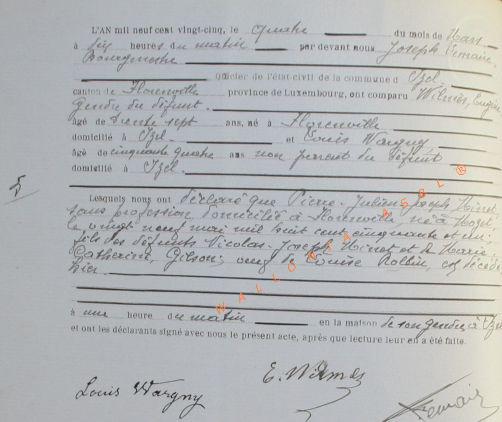 L'AN mil neuf cent vingt-cinq, le quatre du mois de Mars
à dix heures du matin par devant nous Joseph Lemaire,
Bourgmestre
Officier de l'état civil de la commune d' Izel
canton de Florenville province de Luxembourg, ont comparu Wilmès, Eugène
gendre du défunt
âgé de trente sept ans, né à Florenville
domicilié à Izel et Louis Wargny
âgé de cinquante quatre ans non parent du défunt
domicilié à Izel
Lesquels nous ont déclaré que Pierre-Julien-Joseph
sans profession domicilié à Florenville né à
le vingt neuf mai mil huit cent cinquante et un
fils des défunts Nicolas-Joseph et de Marie
Catherine Gilson; veuf de Louise Roblin, est décédé
hier
à une heure du matin en la maison de son gendre à Izel
et ont les déclarants signé avec nous le présent acte, après que lecture leur en a été faite.
E. Wilmès
Louis Wargny
Lemaire
WALLONIA ASBL ®
5